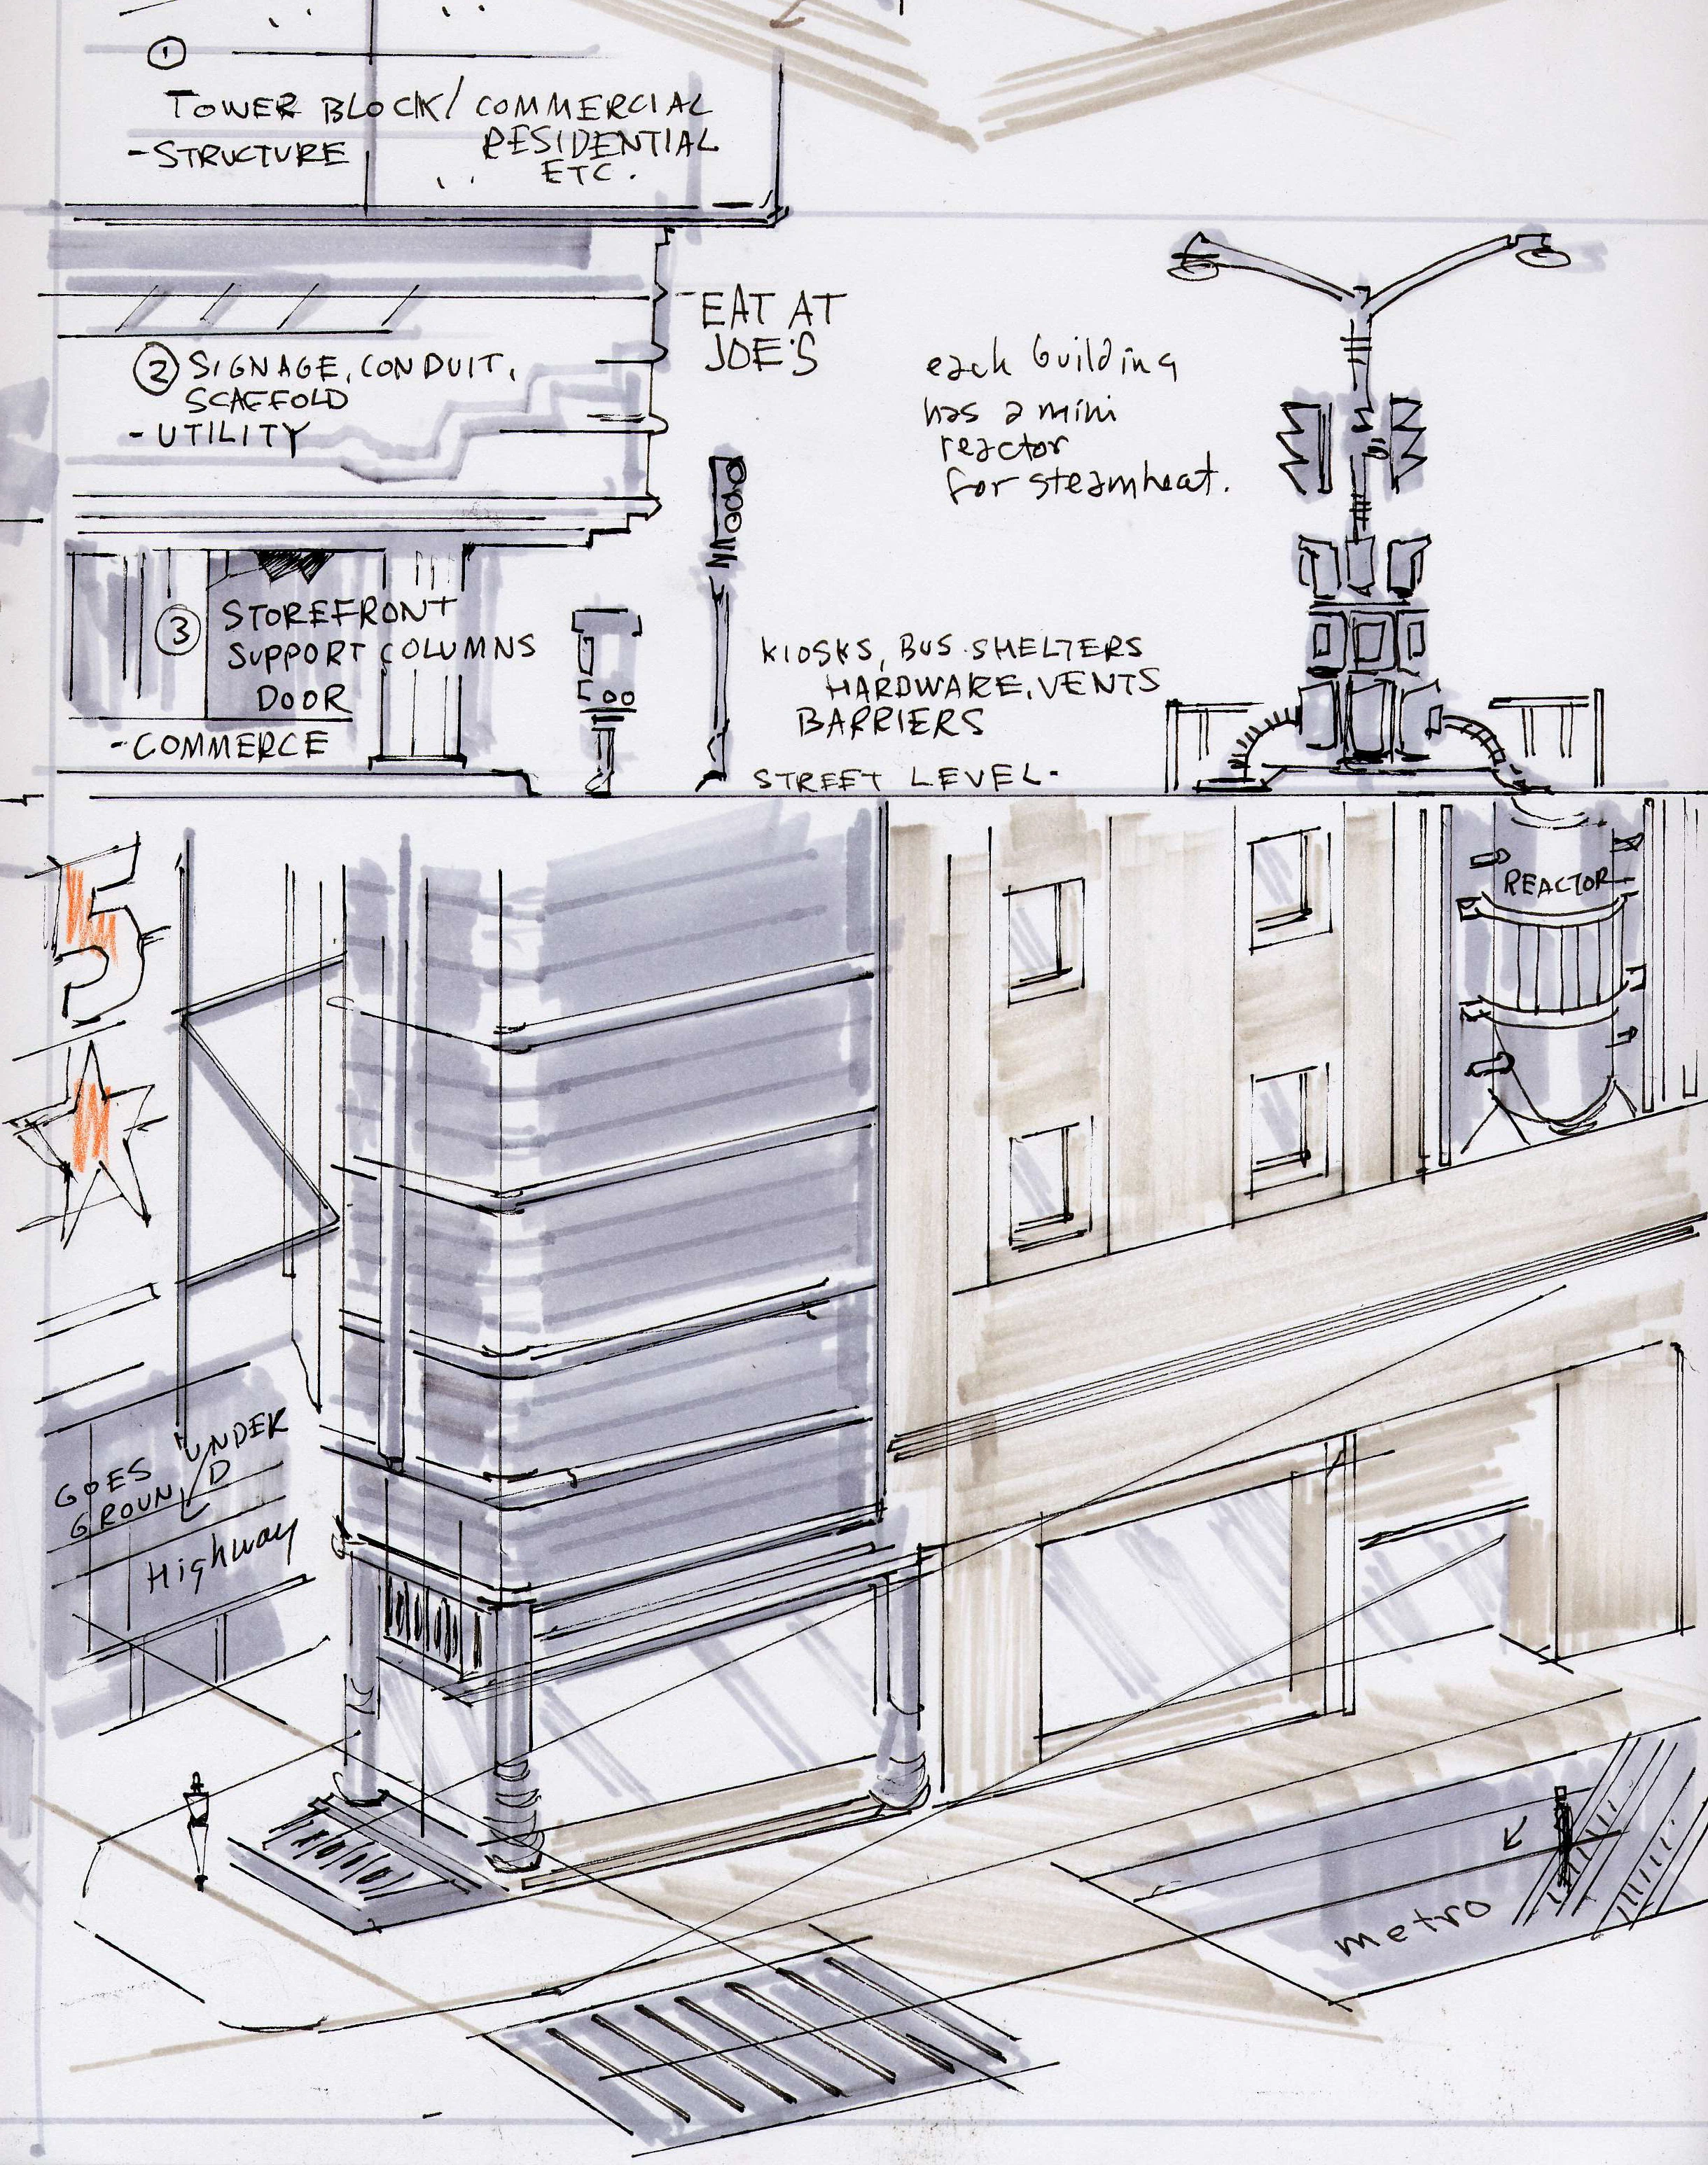 1
TOWER BLOCK/ COMMERCIAL
RESIDENTIAL
ETC.
-STRUCTURE
2 SIGNAGE, CONDUIT,
SCAFFOLD
-UTILITY
EAT AT
JOE'S
each building
has a mini
reactor
for steamheat.
3 STOREFRONT
SUPPORT COLUMNS
DOOR
-COMMERCE
KIOSKS, BUS SHELTERS
HARDWARE, VENTS
BARRIERS
STREET LEVEL-
5
REACTOR
GOES UNDER
GROUND
Highway
metro